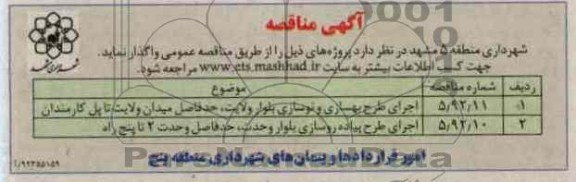 آگهی مناقصه
شهرداری منطقه ۵ مشهد در نظر دارد پروژه‌های ذیل را از طریق مناقصه عمومی واگذار نماید.
جهت کسب اطلاعات بیشتر به سایت www.cts.mashhad.ir مراجعه شود.
ردیف شماره مناقصه موضوع
۱ ۵٫۹۲٫۱۱ اجرای طرح بهسازی و نوسازی بلوار ولایت، حدفاصل میدان ولایت تا پل کارمندان
۲ ۵٫۹۲٫۱۰ اجرای طرح پیاده روسازی بلوار وحدت، حدفاصل وحدت ۲ تا پنج راه
امور قراردادها و پیمان های شهرداری منطقه پنج